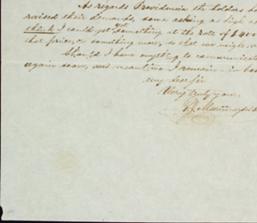 As regards Providencia the holders have
revised their demands, some asking as high as
think I could get something at the rate of $400
that price, or something more, so that we might
Should I have anything to communicate
again soon, and meantime I remain in
my dear sir
Very truly yours,